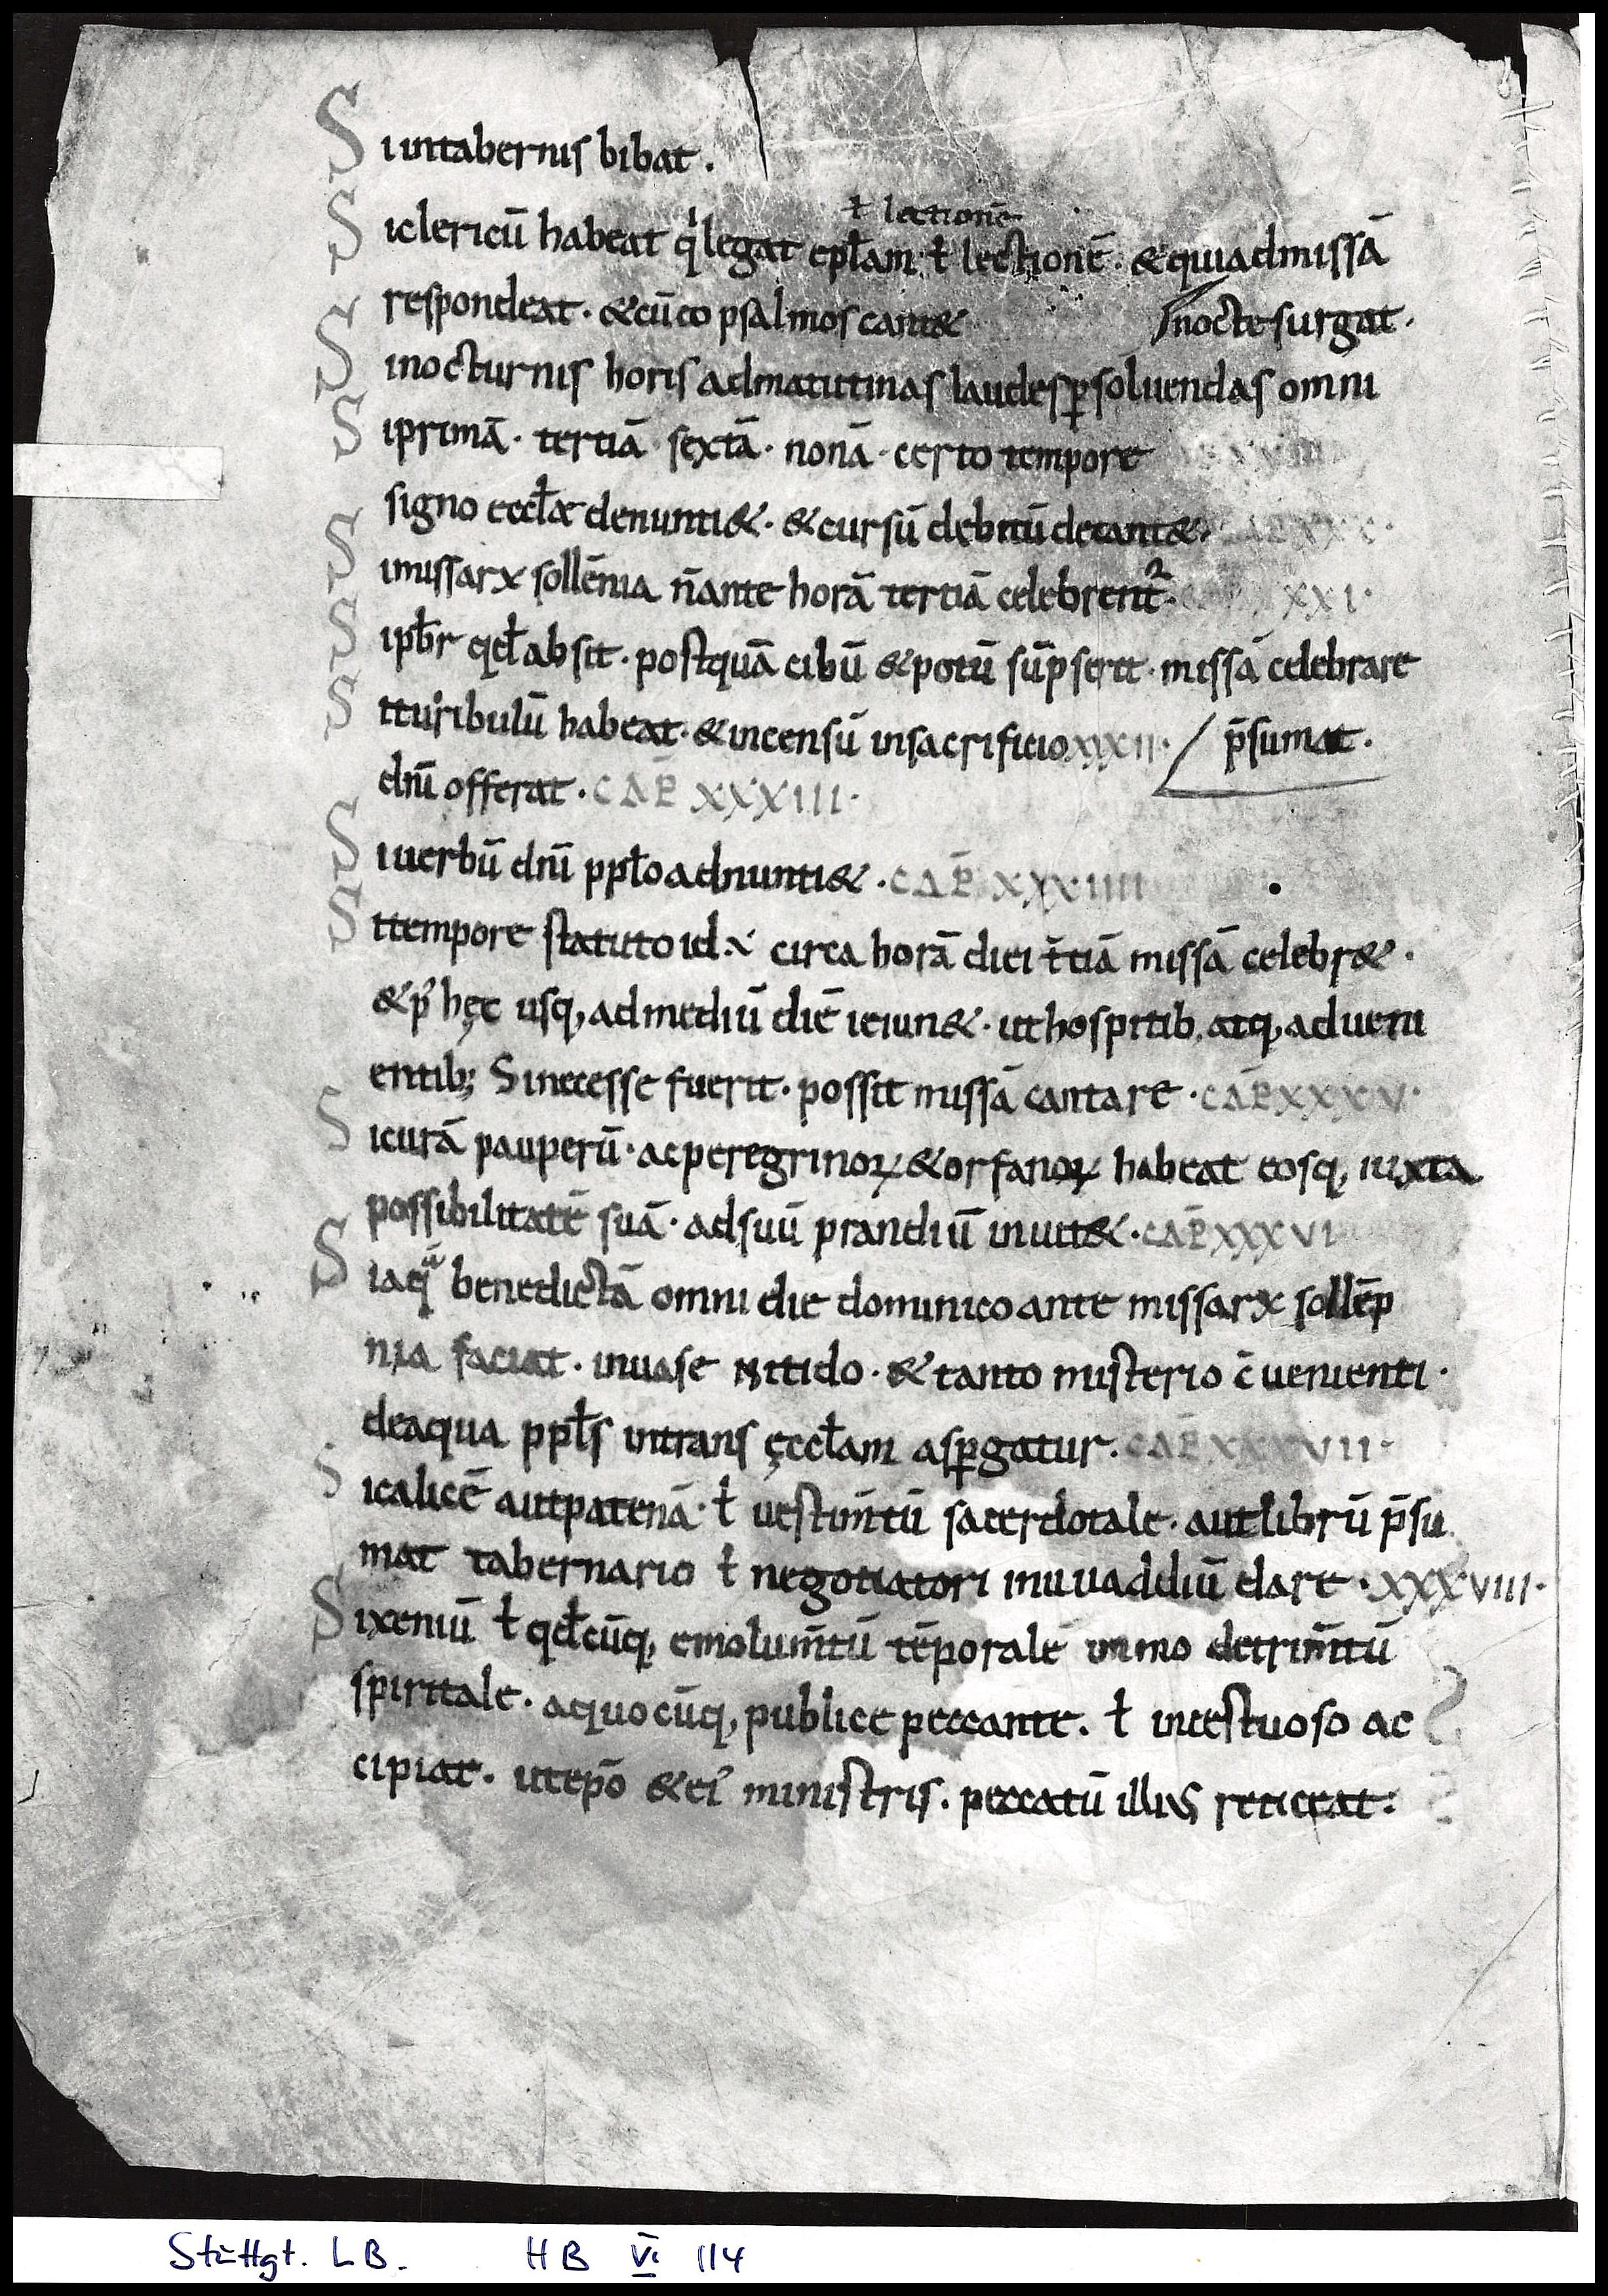 Si intabernis bibat.
ł lectionē
Si clericū habeat qͥ legat epłam ł lectionē. & qui admissā
respondeat. & cū eo psalmos cant& / nocte surgat.
Si nocturnis horis admatutinas laudes ꝑsoluendas omni
Si primā. tertiā. sextā. nonā. certo tempore
signo eccłæ denunti&. & cursū dębitū decant&.
Si missarꝝ sollēnia n̄ ante horā tertiā celebrent᷑. XXXI.
Si pb̄r qd̄ absit. postquā cibū & potū sūpserit. missā celebrare
Si turibulū habeat. & incensū insacrificio XXXII. / p̄sumat.
dn̄i offerat. CAP̄ XXXIII.
Si uerbū dn̄i ppło adnunti&. CAP̄ XXXIIII
Si tempore statuto id ÷ circa horā diei t̄tiā missā celebr&.
& pꝰ hęc usq; ad mediū diē ieiun&. ut hospitib; atq; adueni
entib; Si necesse fuerit. possit missā cantare. CAP̄ XXXV.
Si curā pauperū. ac peregrinoꝝ & orfanoꝝ habeat eosq; iuxta
possibilitatē suā. ad suū prandiū inuit&. CAP̄ XXXVI
Si aqͣ̄ benedictā omni die dominico ante missarꝝ sollēp
nia faciat. inuase nitido. & tanto misterio c̄uenienti.
de aqua ppłs intrans ęccłam asꝑgatur. CAP̄ XXXVII.
Si calicē aut patenā. ł uestim̄tū sacerdotale. aut librū p̄su
mat tabernario ł negotiatori inuuaddiū dare. XXXVIII.
Si xeniū ł qd̄cūq; emolum̄tū tēporale immo detrim̄tū
spiritale. a quocūq; publice peccante. ł incestuoso ac
cipiat. ut ep̄o & eiꝰ ministris. peccatū illius reticeat.
Stuttgt. LB. HB VI 114